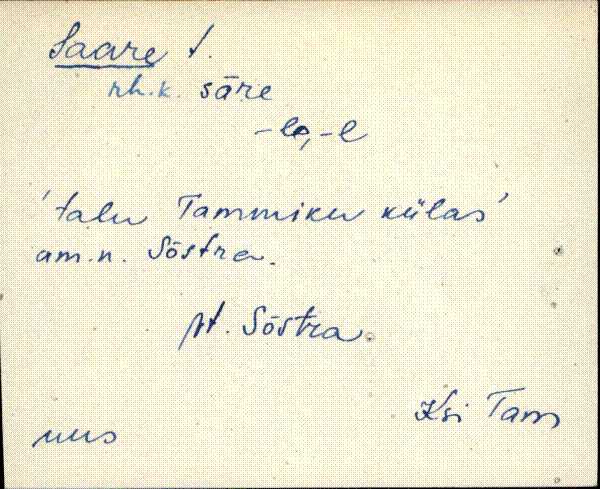 Saare t.
rh.k. sāre
-le, -l
'talu Tammiku külas'
am.n. Sõstra.
pt. Sõstra
Ksi Tam
uus